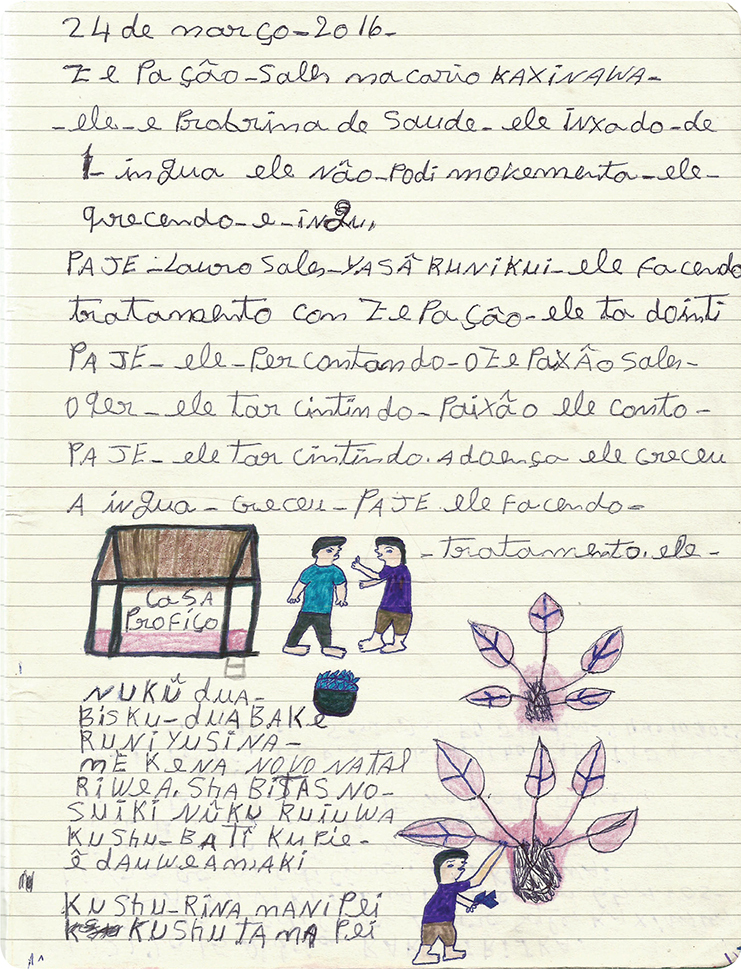 24 de março-2016-
Z e Pação-Sales macario KAXINAWA-
-ele-e Probrima de Saude-ele iNxado-de
ingua ele Não-Podi mokementa-ele-
qrecendo-e-
PAJE-Lauro Sales-YASÂ RUNiKUi-ele Facendo
tratamento con Z e Pação-ele ta dointi
PAJE-ele-Percontando-O Z e PaixÂo Sales-
O qer-ele tar cintindo-Paixão ele conto-
PAJE-ele tar cintindo. A doença ele creceu
A ingua-creceu-PAJE ele Facendo-
-tratamento. ele-
CaSA
Profiço
NUKŨ dUA-
BiSKU-dUA BAKe
RUNi YUSiNA-
mE KENA NOVO NATAl
RiWEA. SHA BiTAS NO-
SUiKi NŨKU RUiUWA
KUSHU-BATi KUPie-
ê dAUWEAmAKi
KUSHU-RiNA mANi Pei
KUSHU TAmA Pei